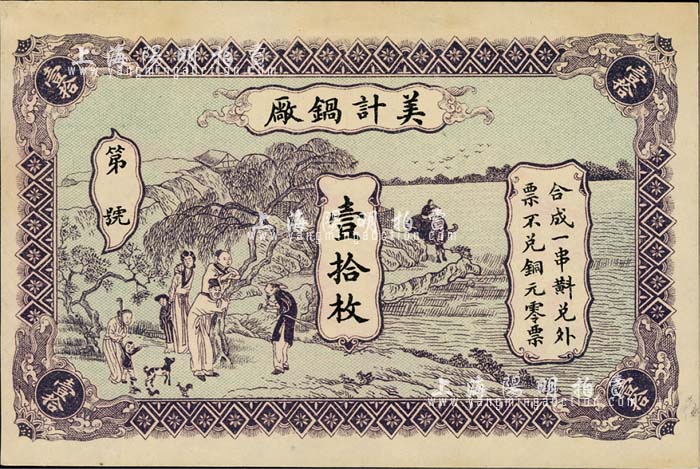 上海陽明拍賣
www.yangmingauction.com
壹拾
壹拾
美計鍋廠
第 號
壹拾枚
合成一串斟兌外
票不兌銅元零票
上海陽明拍賣
www.yangmingauction.com
壹拾
壹拾
上海陽明拍賣
www.yangmingauction.com